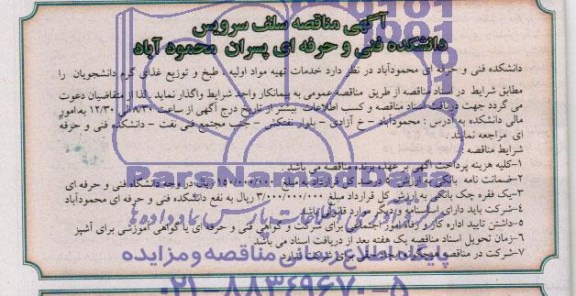 آگهی مناقصه سلف سرویس
دانشکده فنی و حرفه ای پسران محمود آباد
دانشکده فنی و حرفه ای محمودآباد در نظر دارد خدمات تهیه مواد اولیه ، طبخ و توزیع غذای گرم دانشجویان را
مطابق شرایط در اسناد مناقصه از طریق مناقصه عمومی به پیمانکار واجد شرایط واگذار نماید . لذا از متقاضیان دعوت
می گردد جهت دریافت اسناد مناقصه و کسب اطلاعات بیشتر از تاریخ درج آگهی از ساعت ۸/۳۰ الی ۱۲/۳۰ به امور
مالی دانشکده به آدرس : محمودآباد - خ آزادی - بلوار نفتکش - جنب مجتمع فنی نفت - دانشکده فنی و حرفه
ای مراجعه نمایند .
شرایط مناقصه
۱-کلیه هزینه پرداخت آگهی بر عهده برنده مناقصه می باشد .
۲-ضمانت نامه بانکی به ارزش ۵ درصد کل قرارداد به مبلغ ۱۵۰/۰۰۰/۰۰۰ ریال در وجه دانشگاه فنی و حرفه ای
۳-یک فقره چک بانکی به ارزش کل قرارداد مبلغ ۳/۰۰۰/۰۰۰/۰۰۰ ریال به نفع دانشکده فنی و حرفه ای محمودآباد
۴-شرکت باید دارای اساسنامه و
۵-داشتن تاییده اداره کار و رفاه امور اجتماعی برای شرکت و گواهی فنی و حرفه ای یا گواهی آموزشی برای آشپز
۶-زمان تحویل اسناد مناقصه یک هفته بعد از دریافت اسناد می باشد
۷-شرکت در مناقصه
ParsNamadData
پایگاه اطلاع رسانی مناقصه و مزایده
۰۲۱-۸۸۳۴۹۶۷۰-۵